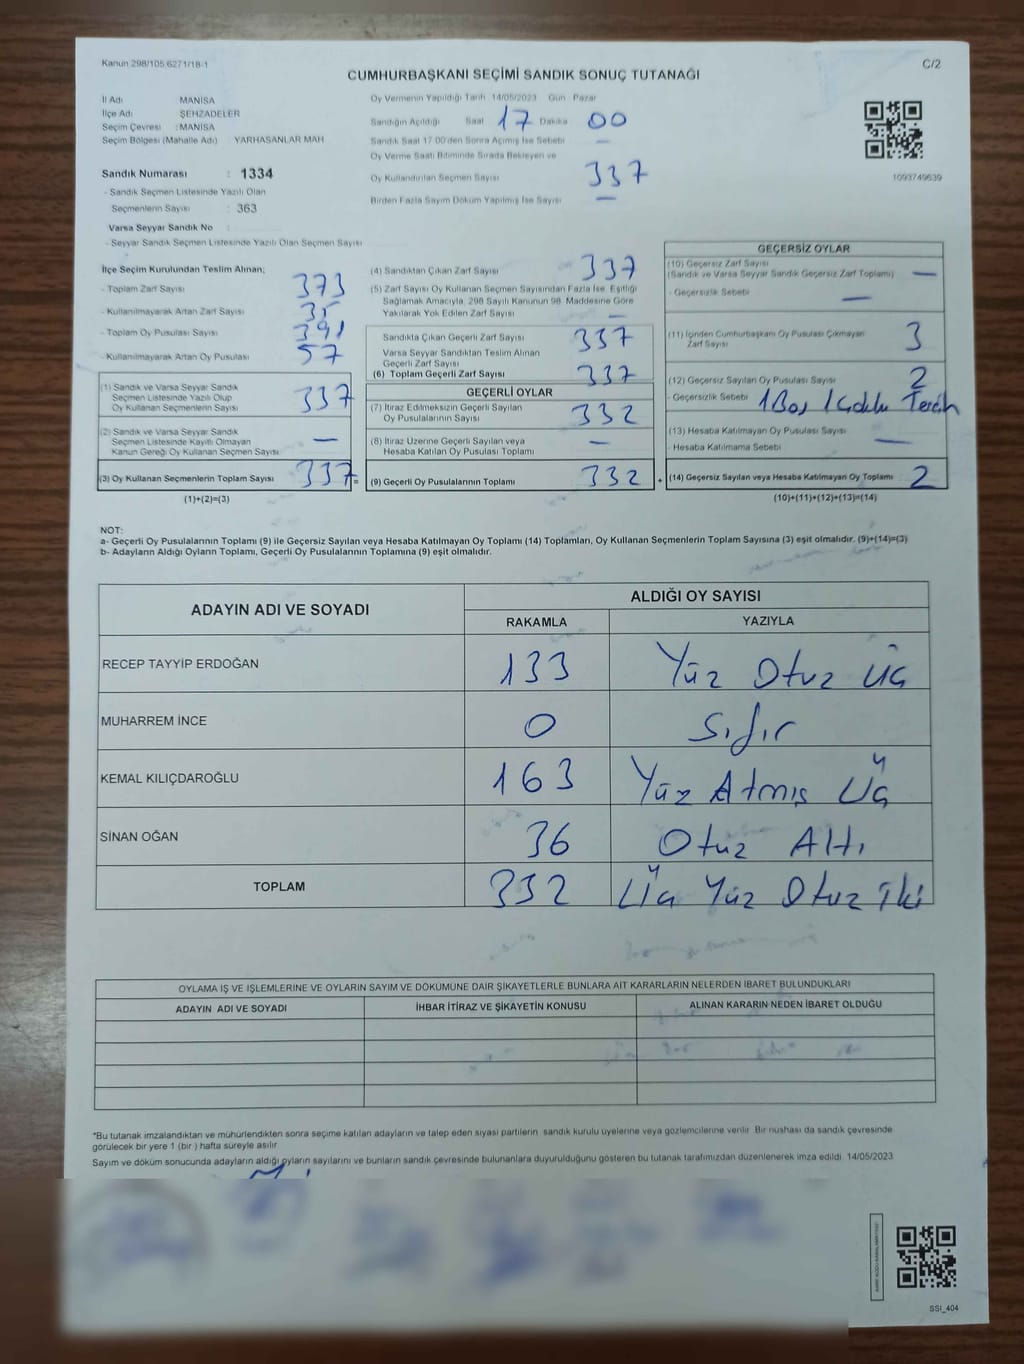 Kanun 298/105 6271/18-1
C/2
CUMHURBAŞKANI SEÇİMİ SANDIK SONUÇ TUTANAĞI
İl Adı MANİSA
İlçe Adı ŞEHZADELER
Seçim Çevresi : MANİSA
Seçim Bölgesi (Mahalle Adı) YARHASANLAR MAH
Sandık Numarası : 1334
- Sandık Seçmen Listesinde Yazılı Olan
Seçmenlerin Sayısı : 363
Varsa Seyyar Sandık No :
- Seyyar Sandık Seçmen Listesinde Yazılı Olan Seçmen Sayısı
Oy Vermenin Yapıldığı Tarih 14/05/2023 Gün Pazar
Sandığın Açıldığı Saat 17 Dakika 00
Sandık Saat 17.00'den Sonra Açılmış İse Sebebi —
Oy Verme Saati Bitiminde Sırada Bekleyen ve
Oy Kullandırılan Seçmen Sayısı 337
Birden Fazla Sayım Döküm Yapılmış İse Sayısı —
1093749639
İlçe Seçim Kurulundan Teslim Alınan;
- Toplam Zarf Sayısı 373
- Kullanılmayarak Artan Zarf Sayısı 35
- Toplam Oy Pusulası Sayısı 391
- Kullanılmayarak Artan Oy Pusulası 57
(1) Sandık ve Varsa Seyyar Sandık
Seçmen Listesinde Yazılı Olup
Oy Kullanan Seçmenlerin Sayısı 337
(2) Sandık ve Varsa Seyyar Sandık
Seçmen Listesinde Kayıtlı Olmayan
Kanun Gereği Oy Kullanan Seçmen Sayısı —
(3) Oy Kullanan Seçmenlerin Toplam Sayısı 337 =
(1)+(2)=(3)
(4) Sandıktan Çıkan Zarf Sayısı 337
(5) Zarf Sayısı Oy Kullanan Seçmen Sayısından Fazla İse, Eşitliği
Sağlamak Amacıyla, 298 Sayılı Kanunun 98. Maddesine Göre
Yakılarak Yok Edilen Zarf Sayısı —
Sandıkta Çıkan Geçerli Zarf Sayısı 337
Varsa Seyyar Sandıktan Teslim Alınan
Geçerli Zarf Sayısı
(6) Toplam Geçerli Zarf Sayısı 337
GEÇERLİ OYLAR
(7) İtiraz Edilmeksizin Geçerli Sayılan
Oy Pusulalarının Sayısı 332
(8) İtiraz Üzerine Geçerli Sayılan veya
Hesaba Katılan Oy Pusulası Toplamı —
(9) Geçerli Oy Pusulalarının Toplamı 332 +
GEÇERSİZ OYLAR
(10) Geçersiz Zarf Sayısı
(Sandık ve Varsa Seyyar Sandık Geçersiz Zarf Toplamı) —
- Geçersizlik Sebebi —
(11) İçinden Cumhurbaşkanı Oy Pusulası Çıkmayan
Zarf Sayısı 3
(12) Geçersiz Sayılan Oy Pusulası Sayısı 2
- Geçersizlik Sebebi 1 Boş 1 Çoklu Tercih
(13) Hesaba Katılmayan Oy Pusulası Sayısı —
- Hesaba Katılmama Sebebi
(14) Geçersiz Sayılan veya Hesaba Katılmayan Oy Toplamı 2
(10)+(11)+(12)+(13)=(14)
NOT:
a- Geçerli Oy Pusulalarının Toplamı (9) ile Geçersiz Sayılan veya Hesaba Katılmayan Oy Toplamı (14) Toplamları, Oy Kullanan Seçmenlerin Toplam Sayısına (3) eşit olmalıdır. (9)+(14)=(3)
b- Adayların Aldığı Oyların Toplamı, Geçerli Oy Pusulalarının Toplamına (9) eşit olmalıdır.
ADAYIN ADI VE SOYADI
ALDIĞI OY SAYISI
RAKAMLA YAZIYLA
RECEP TAYYİP ERDOĞAN 133 Yüz Otuz Üç
MUHARREM İNCE 0 Sıfır
KEMAL KILIÇDAROĞLU 163 Yüz Atmış Üç
SİNAN OĞAN 36 Otuz Altı
TOPLAM 332 Üç Yüz Otuz İki
OYLAMA İŞ VE İŞLEMLERİNE VE OYLARIN SAYIM VE DÖKÜMÜNE DAİR ŞİKAYETLERLE BUNLARA AİT KARARLARIN NELERDEN İBARET BULUNDUKLARI
ADAYIN ADI VE SOYADI İHBAR İTİRAZ VE ŞİKAYETİN KONUSU ALINAN KARARIN NEDEN İBARET OLDUĞU
*Bu tutanak imzalandıktan ve mühürlendikten sonra seçime katılan adayların ve talep eden siyasi partilerin sandık kurulu üyelerine veya gözlemcilerine verilir. Bir nüshası da sandık çevresinde
görülecek bir yere 1 (bir ) hafta süreyle asılır
Sayım ve döküm sonucunda adayların aldığı oyların sayılarını ve bunların sandık çevresinde bulunanlara duyurulduğunu gösteren bu tutanak tarafımızdan düzenlenerek imza edildi. 14/05/2023
SSI_404